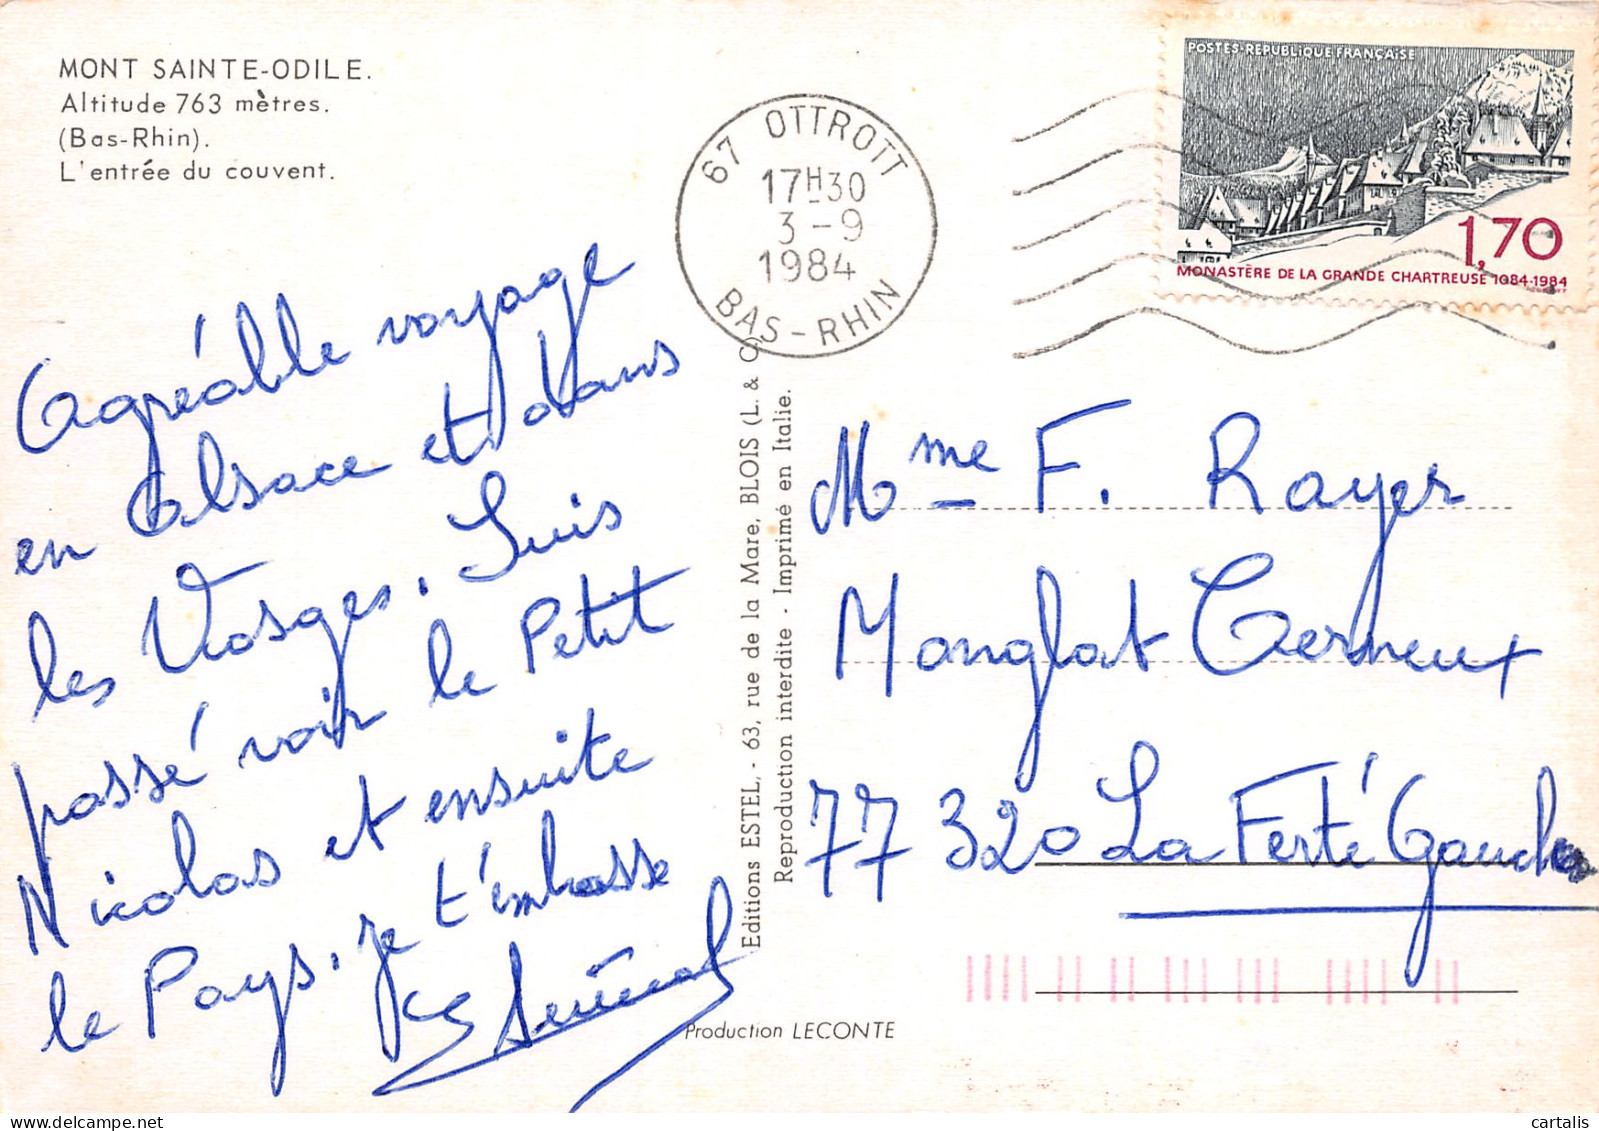 MONT SAINTE-ODILE.
Altitude 763 mètres.
(Bas-Rhin).
L'entrée du couvent.
67 OTTROTT
17H30
3-9
1984
BAS-RHIN
POSTES-RÉPUBLIQUE FRANÇAISE
1,70
MONASTÈRE DE LA GRANDE CHARTREUSE 1084-1984
Agréable voyage
en Alsace et dans
les Vosges. Suis
passé voir le Petit
Nicolas et ensuite
le Pays. Je t'embrasse
Editions ESTEL, - 63, rue de la Mare, BLOIS (L. & C
Reproduction interdite - Imprimé en Italie.
Mme F. Rayer
Monglat Cerneux
77320 La Ferté Gaucher
Production LECONTE
cartalis